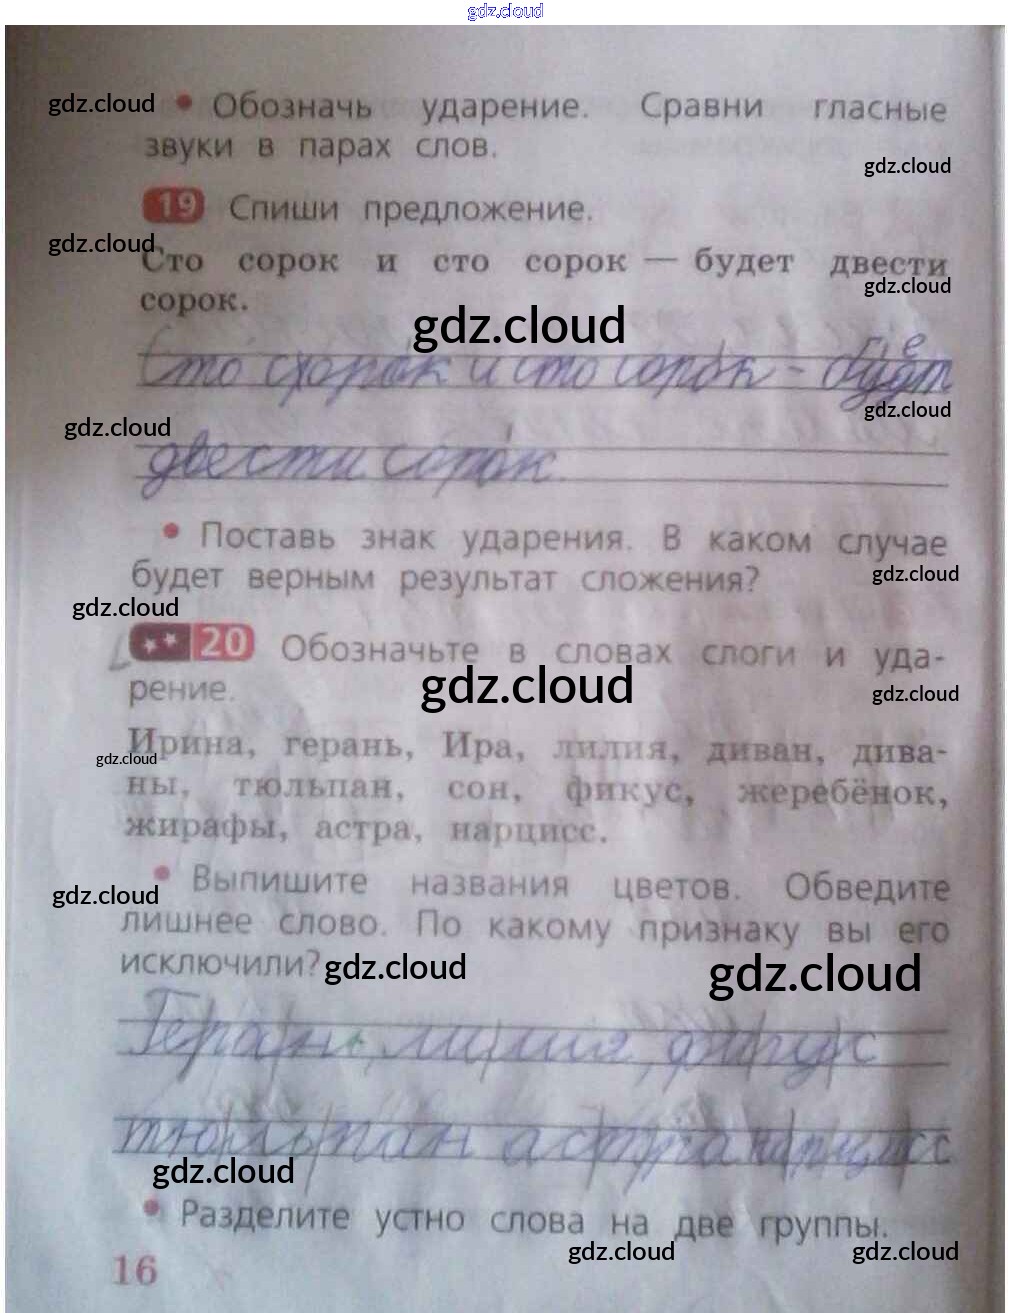 gdz.cloud
gdz.cloud
• Обозначь ударение. Сравни гласные
звуки в парах слов.
gdz.cloud
19 Спиши предложение.
gdz.cloud
Сто сорок и сто сорок — будет двести
gdz.cloud
сорок.
gdz.cloud
Сто сорок и сто сорок - будет
gdz.cloud
gdz.cloud
двести сорок.
• Поставь знак ударения. В каком случае
будет верным результат сложения?
gdz.cloud
gdz.cloud
20 Обозначьте в словах слоги и уда-
рение.
gdz.cloud
gdz.cloud
Ирина, герань, Ира, лилия, диван, дива-
gdz.cloud
ны, тюльпан, сон, фикус, жеребёнок,
жирафы, астра, нарцисс.
• Выпишите названия цветов. Обведите
gdz.cloud
лишнее слово. По какому признаку вы его
исключили?
gdz.cloud
gdz.cloud
Герань, лилия, фикус
тюльпан астра нарцисс
gdz.cloud
• Разделите устно слова на две группы.
gdz.cloud
gdz.cloud
16